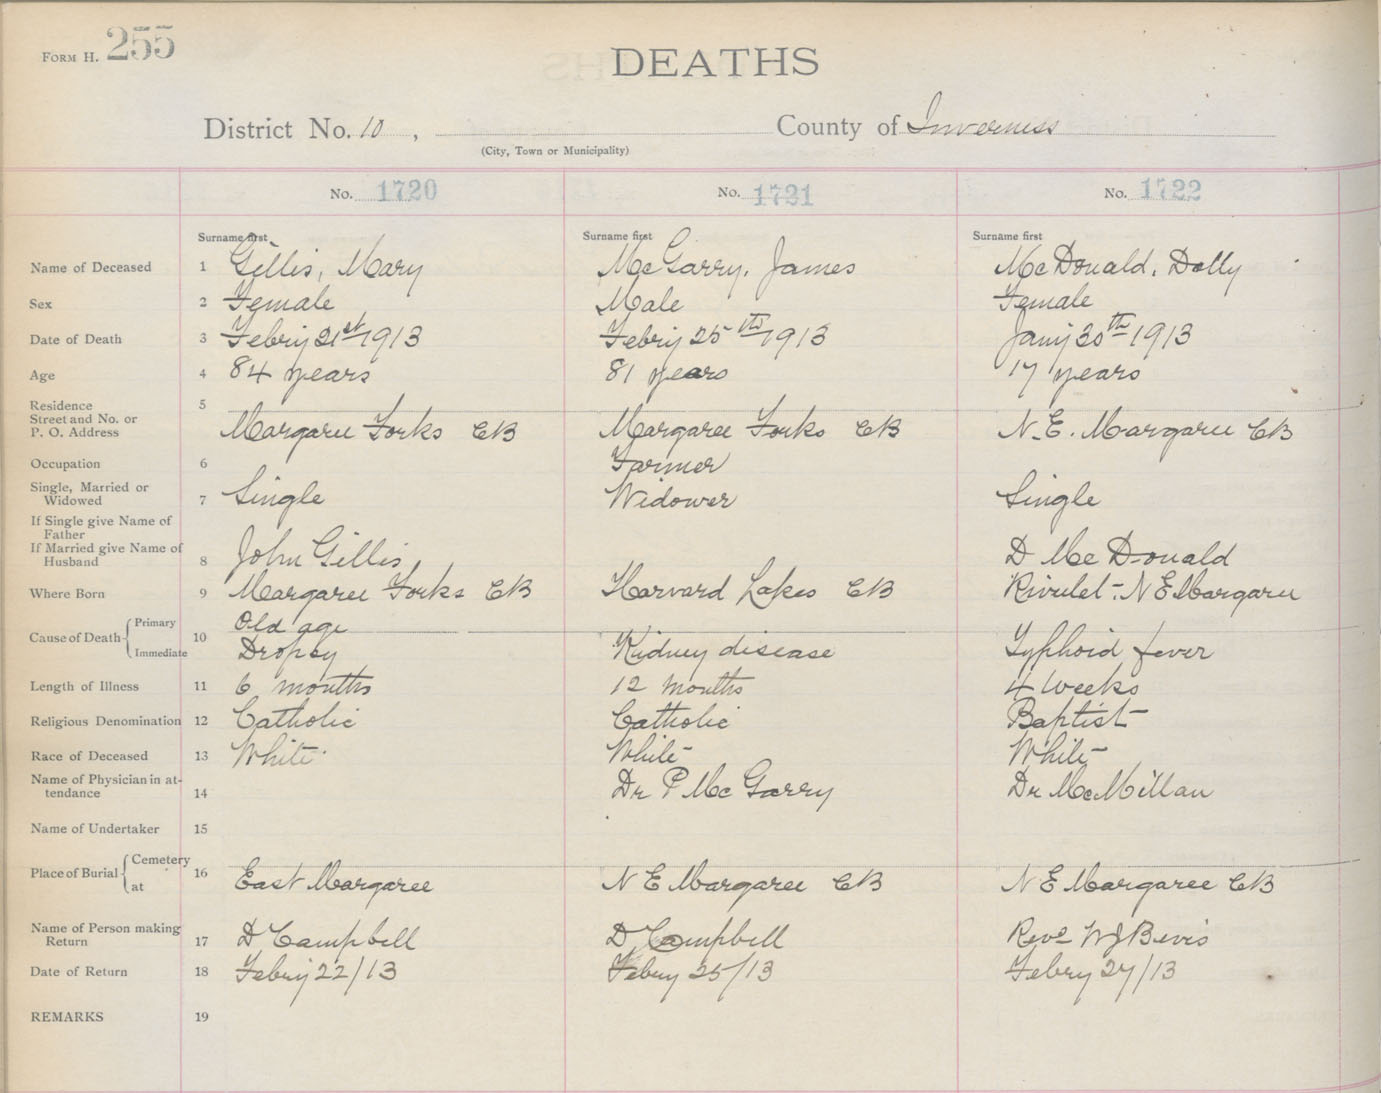 FORM H. 255
DEATHS
District No. 10, County of Inverness
(City, Town or Municipality)
No. 1720 No. 1721 No. 1722
Surname first Surname first Surname first
Name of Deceased 1 Gillis, Mary McGarry, James McDonald, Dolly
Sex 2 Female Male Female
Date of Death 3 Febry 21st 1913 Febry 25th 1913 Jany 30th 1913
Age 4 84 years 81 years 17 years
Residence 5
Street and No. or
P. O. Address Margaree Forks CB Margaree Forks CB N.E. Margaree CB
Occupation 6 Farmer
Single, Married or
Widowed 7 Single Widower Single
If Single give Name of
Father
If Married give Name of
Husband 8 John Gillis D McDonald
Where Born 9 Margaree Forks CB Harvard Lakes CB Rivulet - N E Margaree
Cause of Death Primary Old age
10
Immediate Dropsy Kidney disease Typhoid fever
Length of Illness 11 6 months 12 months 4 weeks
Religious Denomination 12 Catholic Catholic Baptist
Race of Deceased 13 White White White
Name of Physician in at-
tendance 14 Dr P McGarry Dr McMillan
Name of Undertaker 15
Place of Burial Cemetery 16
at East Margaree N E Margaree CB N E Margaree CB
Name of Person making
Return 17 D Campbell D Campbell Revd W J Bevis
Date of Return 18 Febry 22/13 Febry 25/13 Febry 27/13
REMARKS 19